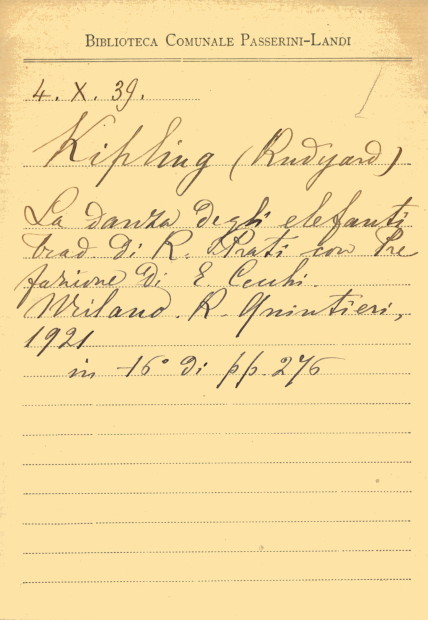 BIBLIOTECA COMUNALE PASSERINI-LANDI
4. X. 39.
Kipling (Rudyard)
La danza degli elefanti
trad di R. Prati con Pre
fazione di E. Cecchi.
Milano. R. Quintieri,
1921
in -16° di pp. 276